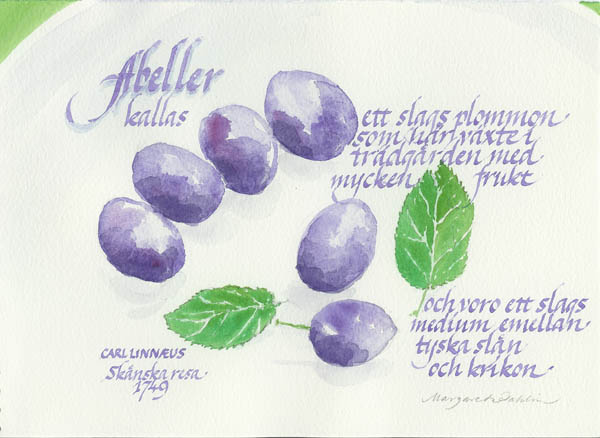 Abeller
kallas
ett slags plommon
som här växte i
trädgården med
mycken frukt
och voro ett slags
medium emellan
tyska slån
och krikon.
CARL LINNÆUS
Skånska resa
1749
Margareta Dahlin